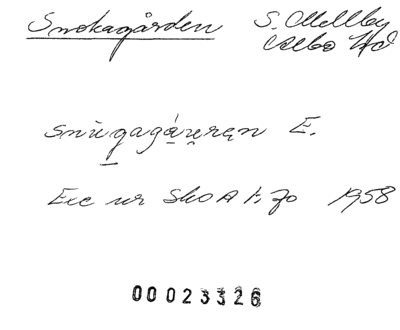 Snokagården S. Mellby
Albo Hd
snùgagá̱u̯ręn E.
Exc ur SkOA 1:70 1958
00023326